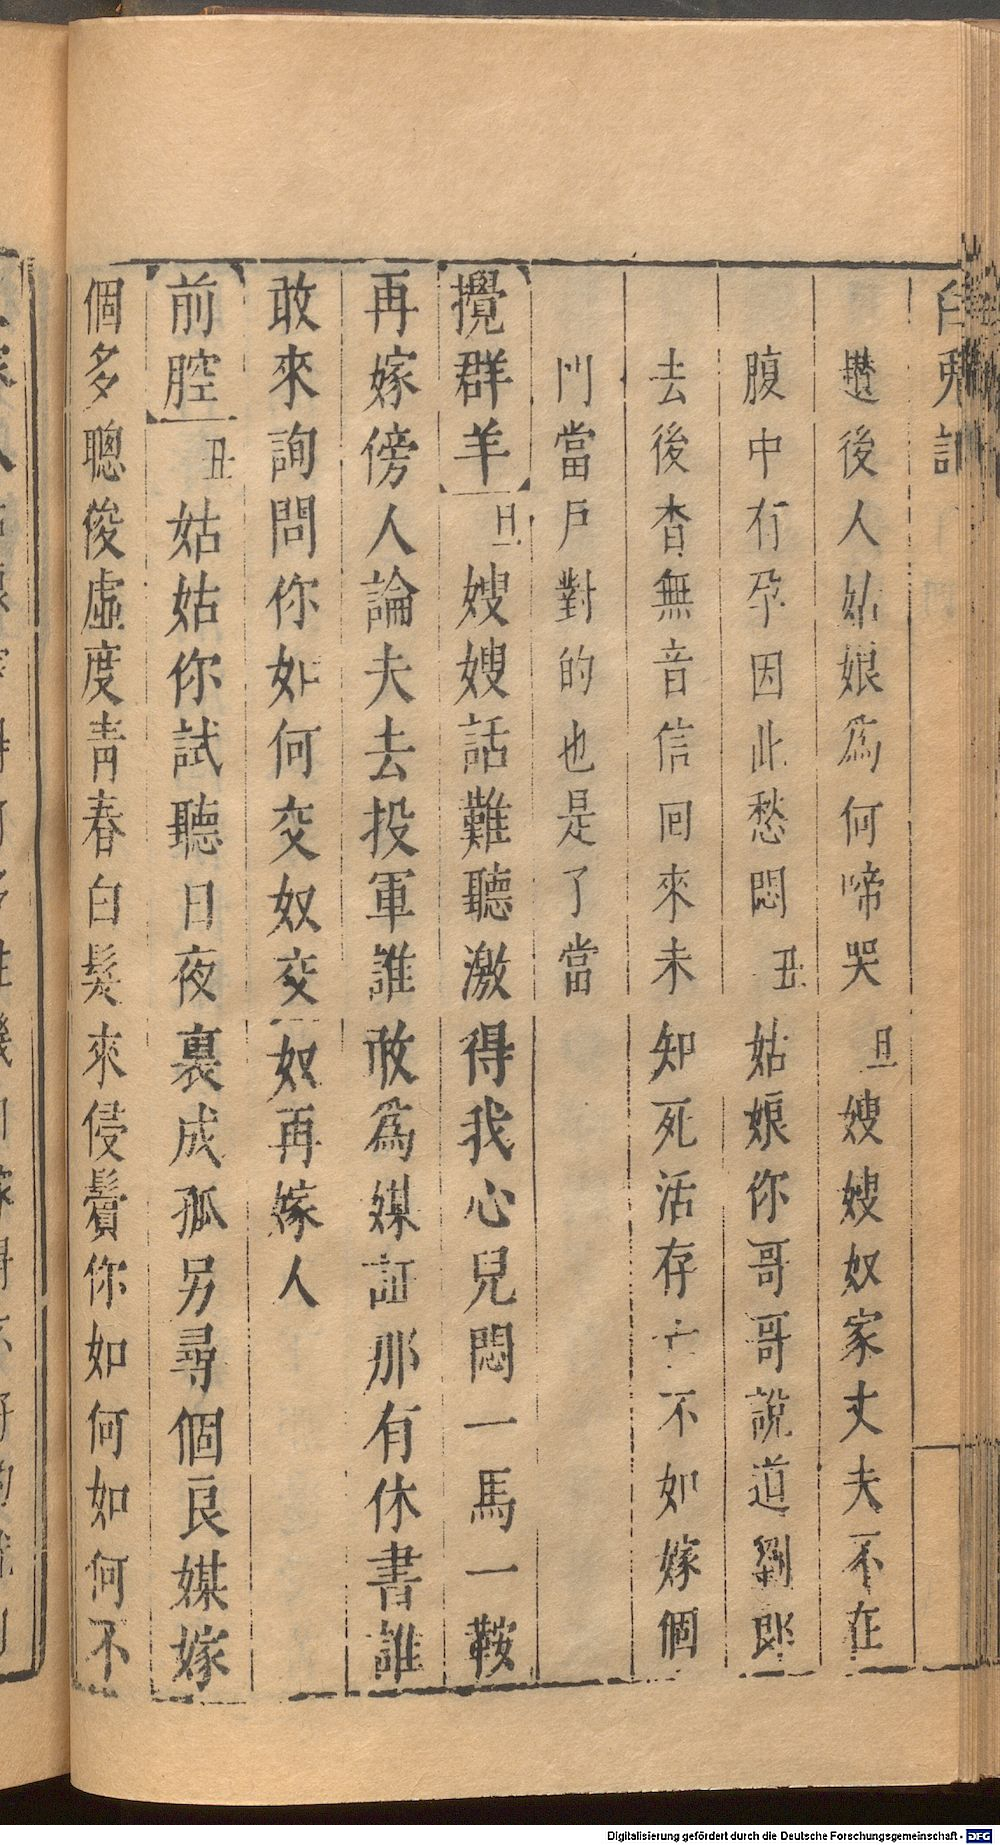 白兎記
攢後人姑娘爲何啼哭旦嫂嫂奴家丈夫不在
腹中有孕因此愁悶丑姑娘你哥哥說道劉郎
去後杳無音信回來未知死活存亡不如嫁個
門當戸對的也是了當
攪群羊旦嫂嫂話難聽激得我心兒悶一馬一鞍
再嫁傍人論夫去投軍誰敢爲媒証那有休書誰
敢來詢問你如何交奴交奴再嫁人
前腔丑姑姑你試聽日夜裏成孤另尋個良媒嫁
個多聰俊虛度靑春白髮來侵鬢你如何如何不
Digitalisierung gefördert durch die Deutsche Forschungsgemeinschaft - DFG